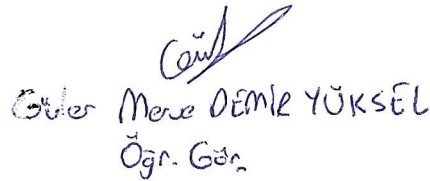 Güler Merve DEMİR YÜKSEL
Öğr. Gör.